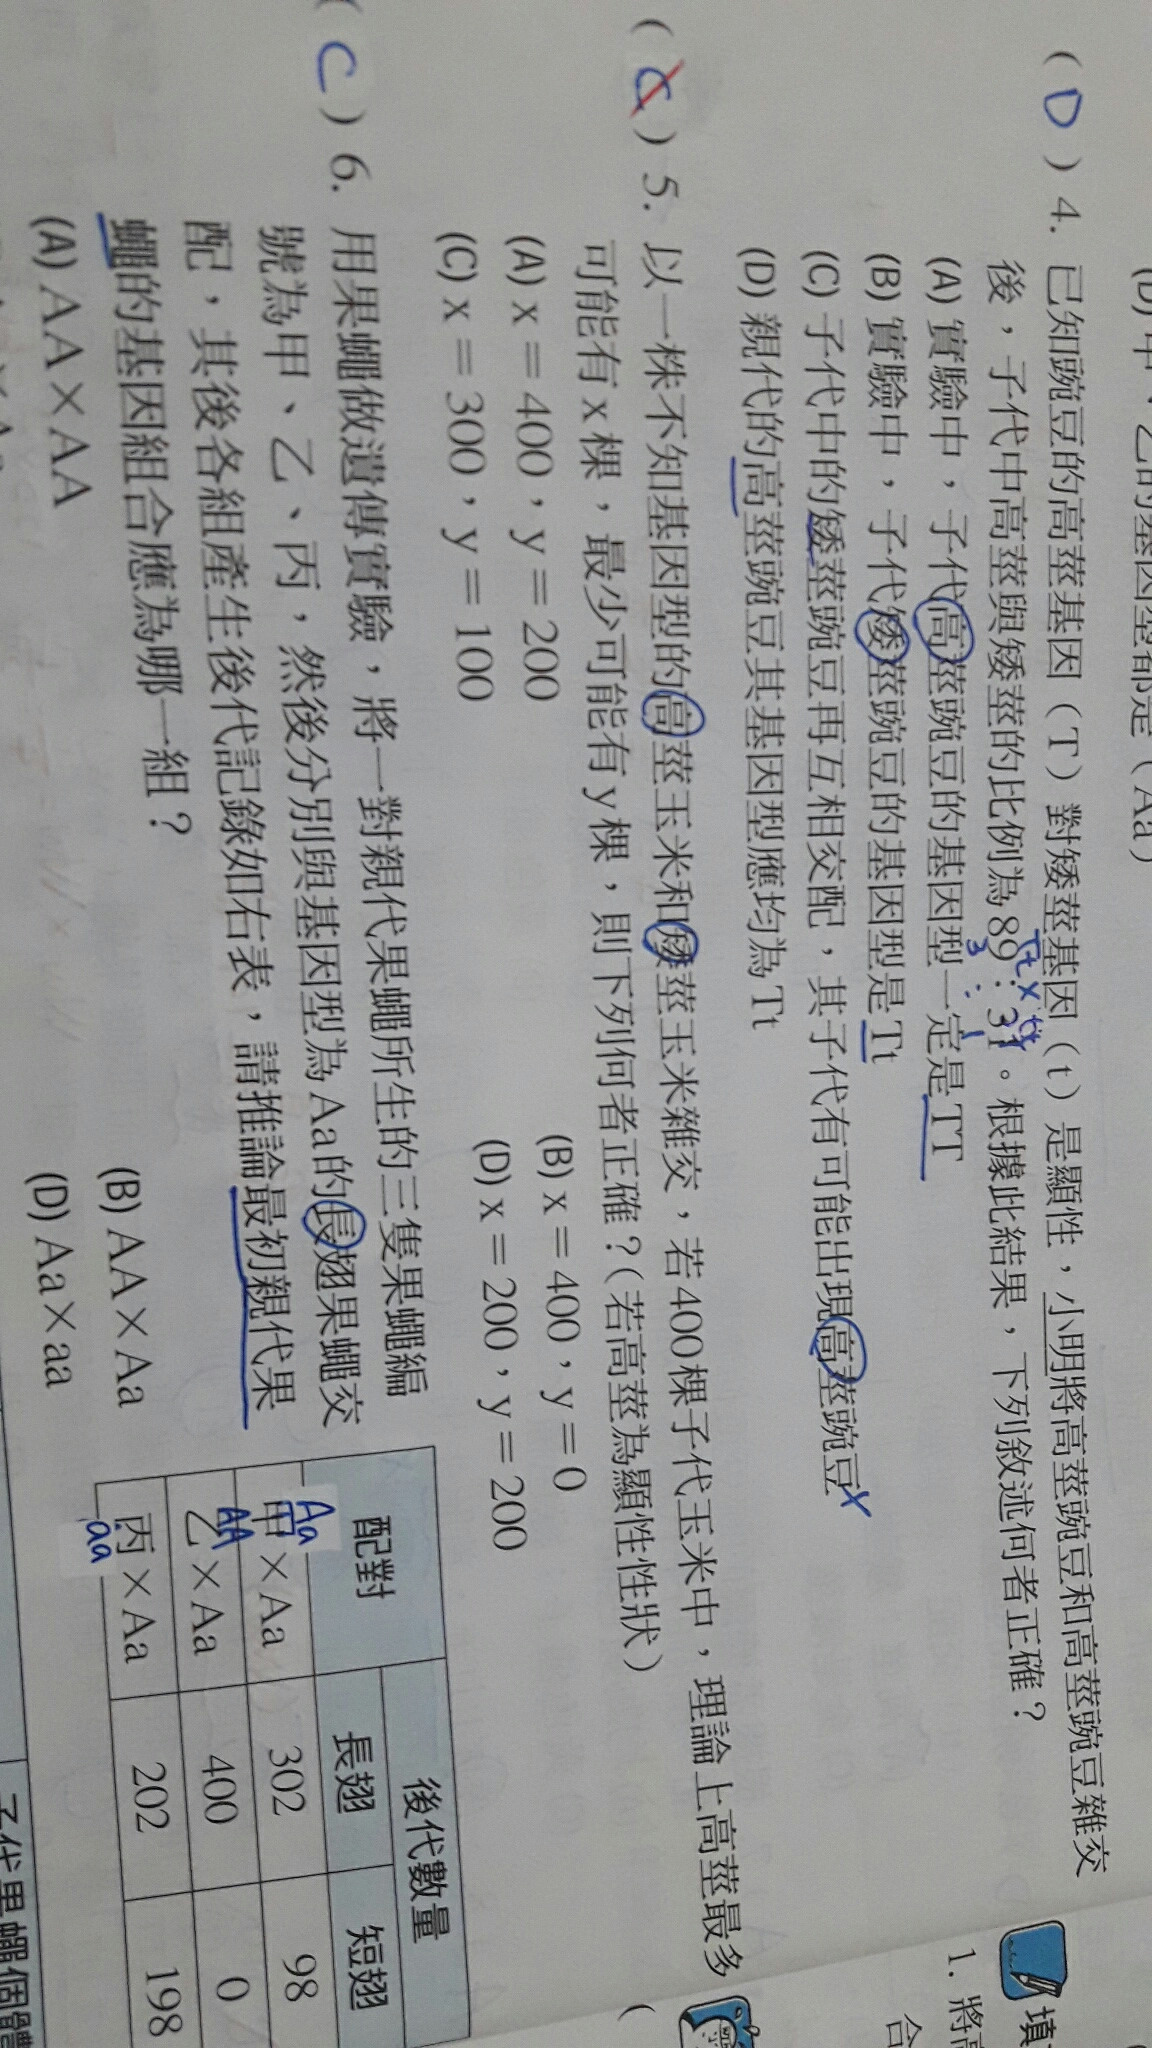 (D) 甲、乙的基因型都是（Aa）
( D ) 4. 已知豌豆的高莖基因（T）對矮莖基因（t）是顯性，小明將高莖豌豆和高莖豌豆雜交
後，子代中高莖與矮莖的比例為89：31。根據此結果，下列敘述何者正確？
3 : 1
(A) 實驗中，子代高莖豌豆的基因型一定是TT
(B) 實驗中，子代矮莖豌豆的基因型是Tt
(C) 子代中的矮莖豌豆再互相交配，其子代有可能出現高莖豌豆
(D) 親代的高莖豌豆其基因型應均為Tt
( C ) 5. 以一株不知基因型的高莖玉米和矮莖玉米雜交，若400棵子代玉米中，理論上高莖最多
可能有x棵，最少可能有y棵，則下列何者正確？(若高莖為顯性性狀）
(A) x＝400，y＝200
(B) x＝400，y＝0
(C) x＝300，y＝100
(D) x＝200，y＝200
( C ) 6. 用果蠅做遺傳實驗，將一對親代果蠅所生的三隻果蠅編
號為甲、乙、丙，然後分別與基因型為Aa的長翅果蠅交
配，其後各組產生後代記錄如右表，請推論最初親代果
蠅的基因組合應為哪一組？
(A) AA×AA
(B) AA×Aa
(D) Aa×aa
配對
後代數量
長翅
短翅
Aa
甲×Aa
302
98
AA
乙×Aa
400
0
丙×Aa
202
198
aa
子代果蠅個體
填
1. 將高
合